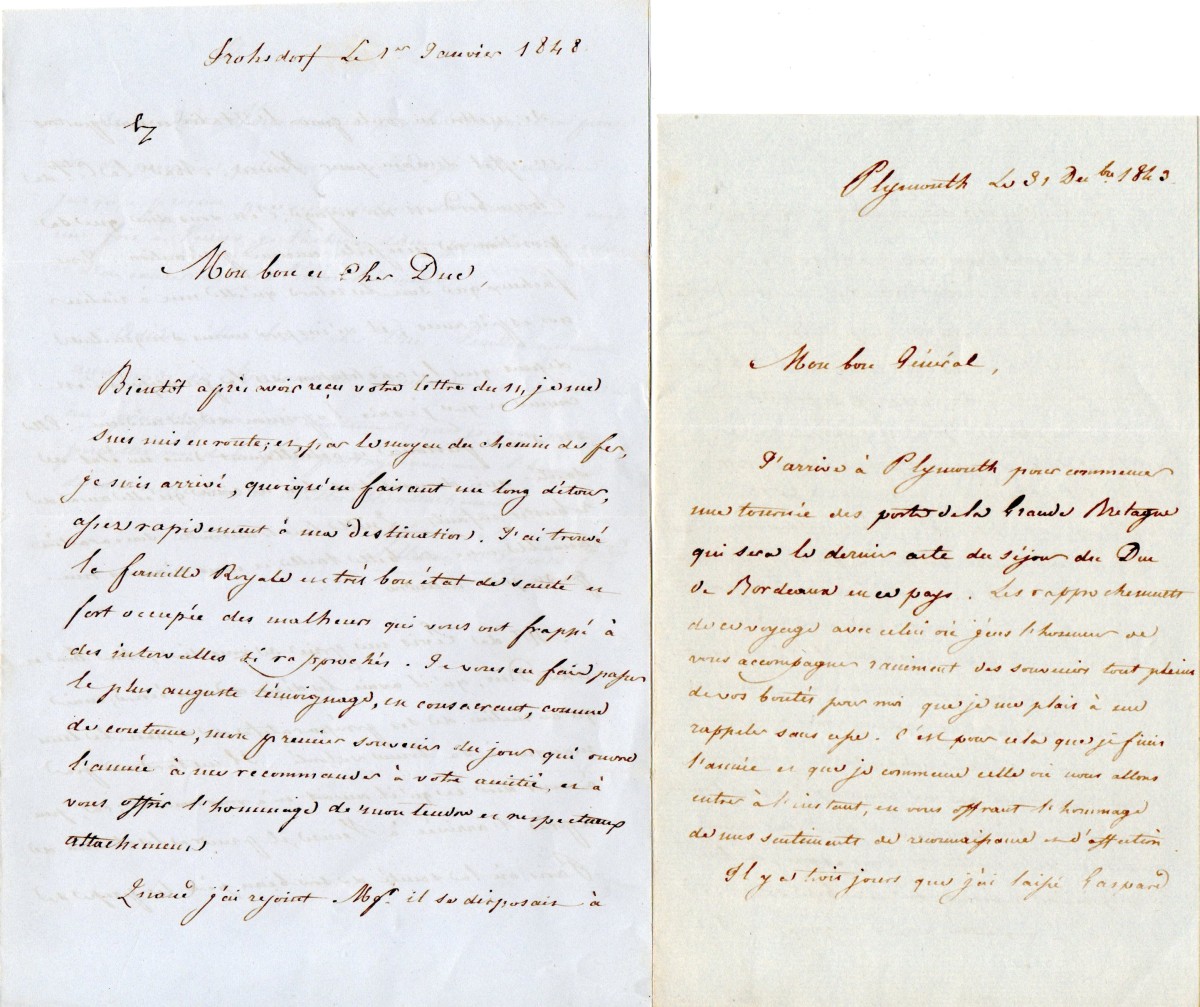 Frohsdorf Le 1er Janvier 1848
Mon bon et Cher Duc,
Bientôt après avoir reçu votre lettre du 11, je me
suis mis en route; et, par le moyen du chemin de fer,
je suis arrivé, quoiqu'en faisant un long détour,
assez rapidement à ma destination. J'ai trouvé
la famille Royale en très bon état de santé et
fort occupée des malheurs qui vous ont frappé à
des intervalles si raprochés. Je vous en fais passer
le plus auguste témoignage, en consacrant, comme
de coutume, mon premier souvenir du jour qui ouvre
l'année à me recommander à votre amitié, et à
vous offrir l'hommage de mon tendre et respectueux
attachement
Quand j'ai rejoint Mgr. il se disposait à
Plymouth Le 31 Decbre 1843
Mon bon Général,
J'arrive à Plymouth pour commencer
une tournée des ports de la Grande Bretagne
qui sera le dernier acte du séjour du Duc
de Bordeaux en ce pays. Les rapprochements
de ce voyage avec celui où j'eus l'honneur de
vous accompagner raniment des souvenirs tout pleins
de vos bontés pour moi que je me plais à me
rappeler sans cesse. C'est pour cela que je finis
l'année et que je commence celle où nous allons
entrer à l'instant, en vous offrant l'hommage
de mes sentiments de reconnaissance et d'affection
Il y a trois jours que j'ai laissé Gaspard